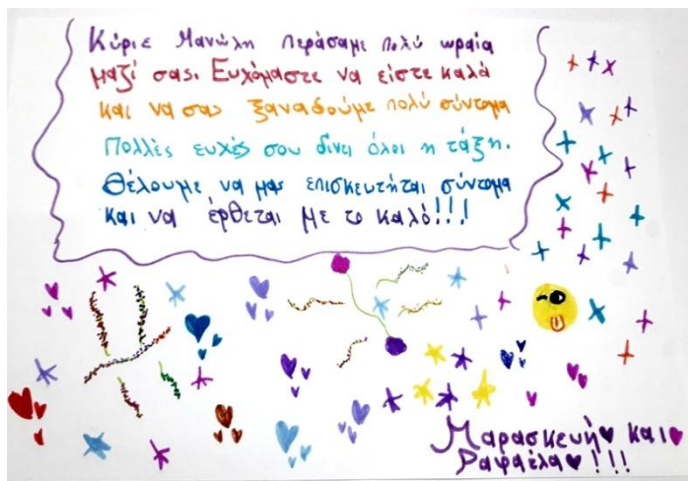 Κύριε Μανώλη περάσαμε πολύ ωραία
μαζί σας. Ευχόμαστε να είστε καλά
και να σας ξαναδούμε πολύ σύντομα
Πολλές ευχές σου δίνει όλοι η τάξη.
Θέλουμε να μας επισκευτήται σύντομα
και να έρθεται με το καλό!!!
Μαρασκευή και
Ραφαέλα !!!